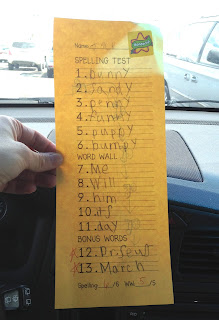 Name:
SPELLING TEST
1. bunny
2. Sandy
3. penny
4. fanny
5. puppy
6. bumpy
WORD WALL
7. Me
8. Will
9. him
10. it
11. day
BONUS WORDS
12. Dr. Seus
13. March
Spelling: /6 WW: 5/5